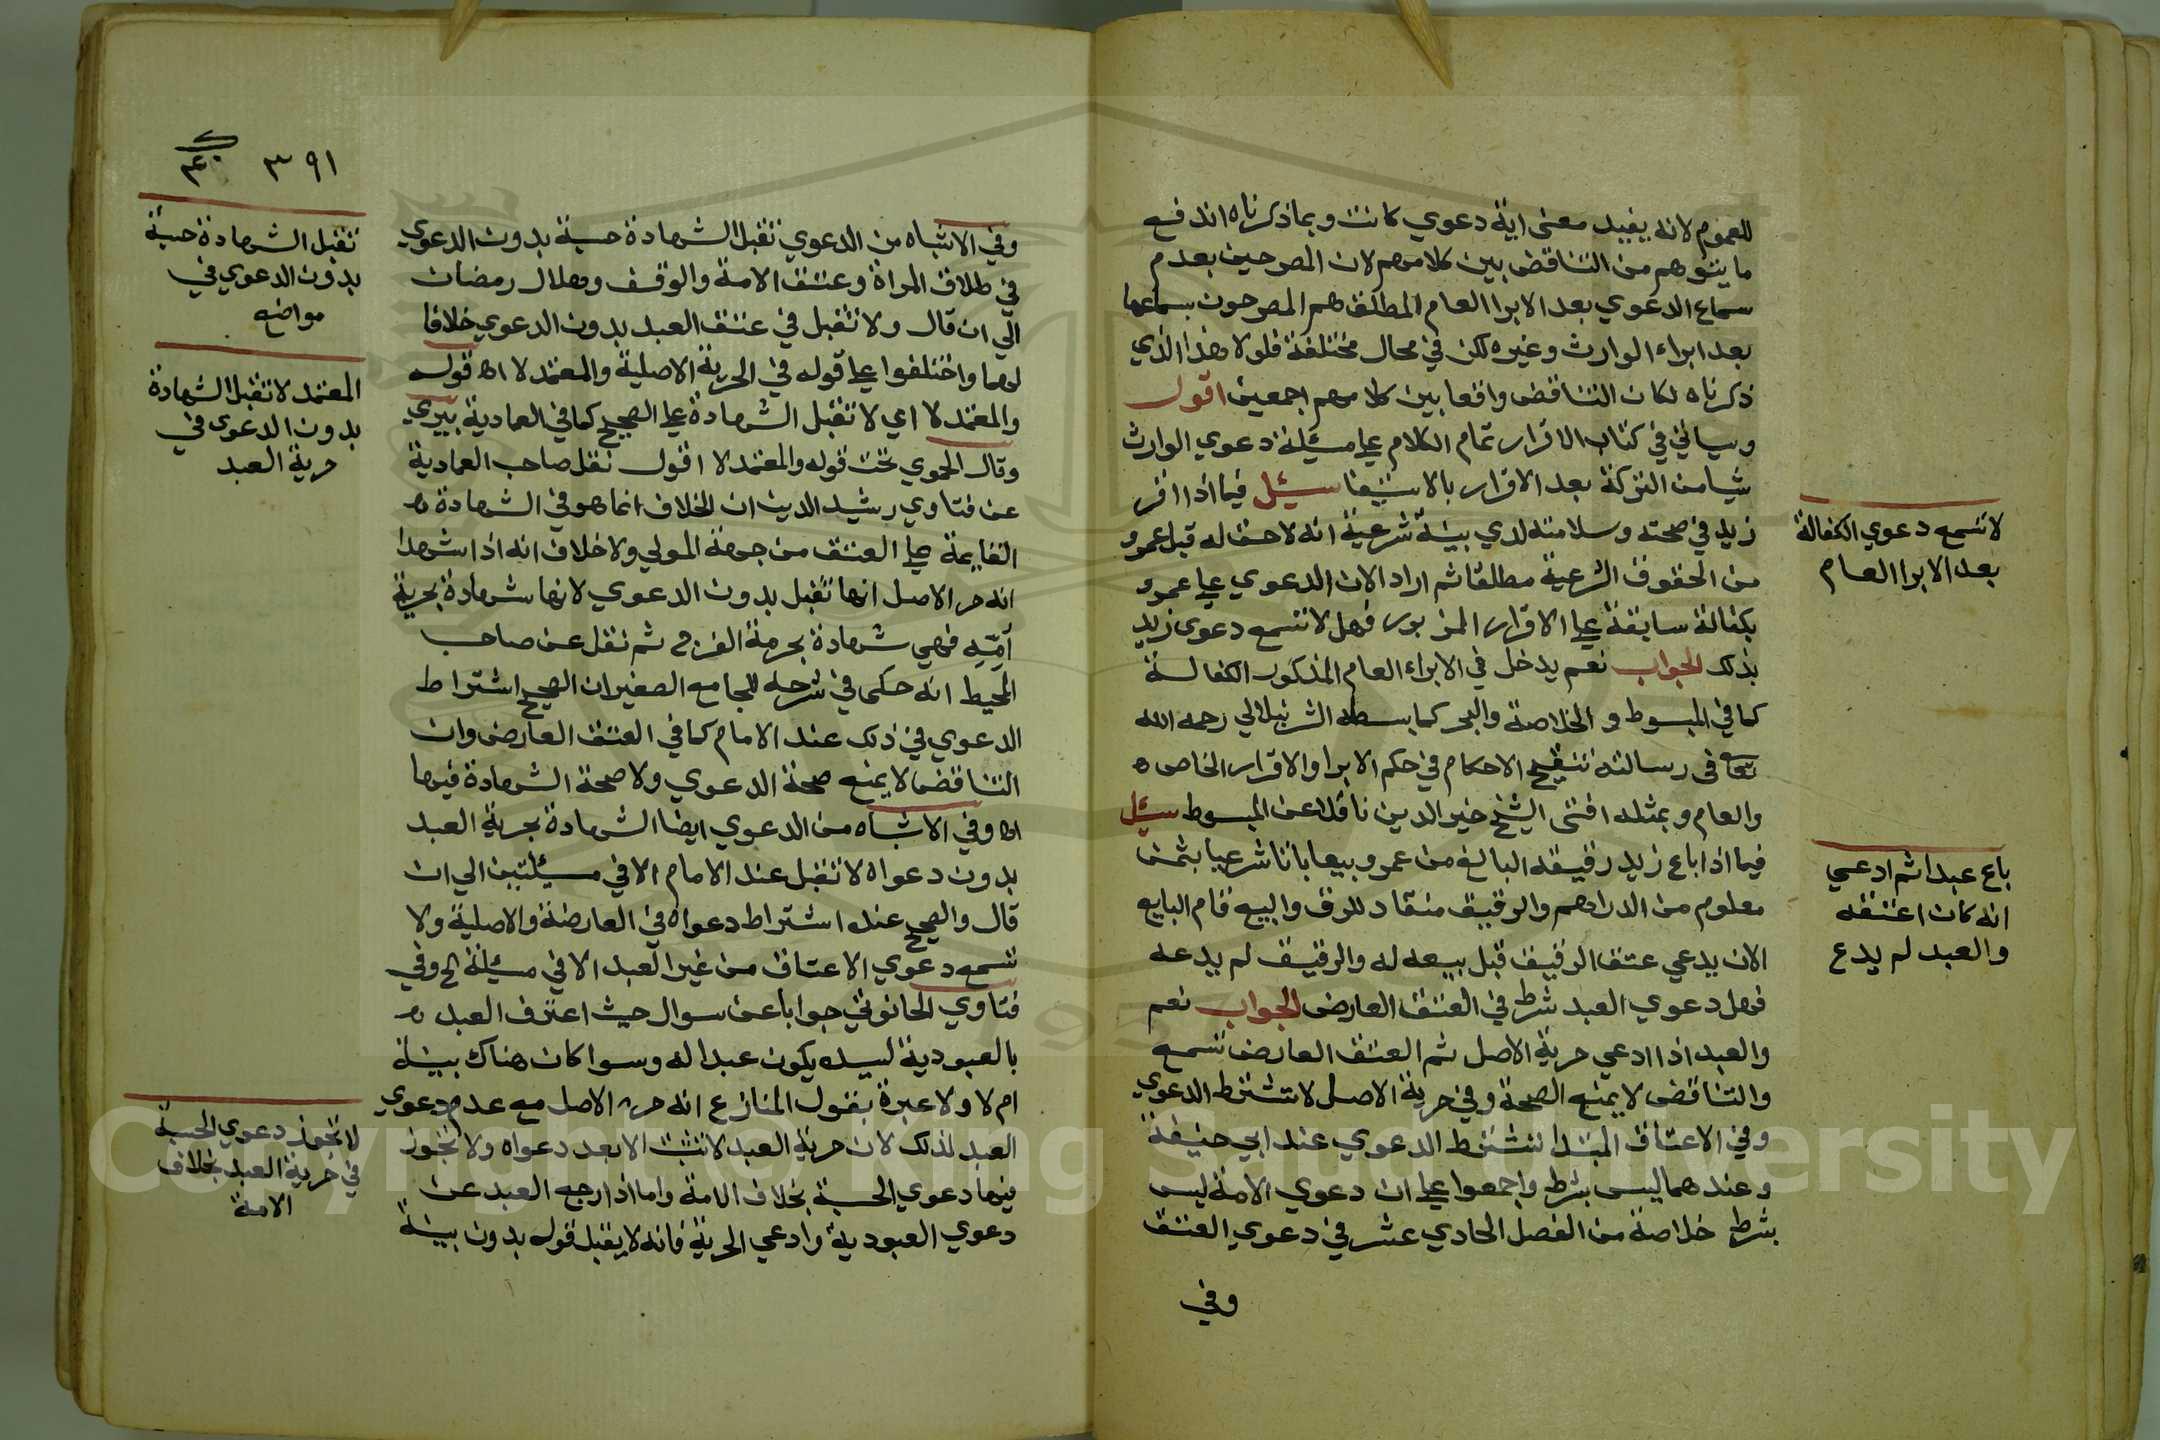 للعموم لانه يفيد معنى اية دعوي كانت وبما ذكرناه اندفع
ما يتوهم من التناقض بين كلامهم لان المصرحين بعدم
سماع الدعوي بعد الابرا العام المطلق هم المصرحون بسماعها
بعد ابراء الوارث وغيره لكن في محال مختلفة فلولا هذا الذي
ذكرناه لكان التناقض واقعا بين كلامهم اجمعين اقول
وسياتي في كتاب الاقرار تمام الكلام علي مسئلة دعوي الوارث
شيا من التركة بعد الاقرار بالاستيفا سئل فيما اذا اقر
زيد في صحته وسلامته لدي بينة شرعية انه لا حق له قبل عمرو
من الحقوق الشرعية مطلقا ثم اراد الان الدعوي علي عمرو
بكفالة سابقة علي الاقرار المزبور فهل لا تسمع دعوى زيد
بذلك الجواب نعم يدخل في الابراء العام المذكور الكفالة
كما في المبسوط و الخلاصة والبحر كما بسطه الشرنبلالي رحمه الله
تعا في رسالته تنقيح الاحكام في حكم الابرا والاقرار الخاص ه
والعام وبمثله افتى الشيخ خير الدين ناقلا عن المبسوط سئل
فيما اذا باع زيد رقيقه البالغ من عمرو بيعا باتا شرعيا بثمن
معلوم من الدراهم والرقيق منقاد للرق والبيع قام البايع
الان يدعي عتق الرقيق قبل بيعه له والرقيق لم يدعه
فهل دعوي العبد شرط في العتق العارض الجواب نعم
والعبد اذا ادعي حرية الاصل ثم العتق العارض تسمع
والتناقض لا يمنع الصحة وفي حرية الاصل لا تشترط الدعوي
وفي الاعتاق المبتدا تشترط الدعوي عند ابي حنيفة
وعندهما ليس بشرط واجمعوا علي ان دعوي الامة ليس
بشرط خلاصة من الفصل الحادي عشر في دعوي العتق
وفي
لا تسمع دعوي الكفالة
بعد الابرا العام
باع عبدا ثم ادعي
انه كان اعتقه
والعبد لم يدع
٣٩١
وفي الاشباه من الدعوي تقبل الشهادة حسبة بدون الدعوي
في طلاق المراة وعتق الامة والوقف وهلال رمضان
الي ان قال ولا تقبل في عتق العبد بدون الدعوي خلافا
لهما واختلفوا علي قوله في الحرية الاصلية والمعتمد لا اه قوله
والمعتمد لا اي لا تقبل الشهادة علي الصحيح كما في العمادية بيري
وقال الحموي تحت قوله والمعتمد لا اقول نقل صاحب العمادية
عن فتاوي رشيد الدين ان الخلاف انما هو في الشهادة ه
القايمة علي العتق من جهة المولي ولا خلاف انه اذا شهدا
انه حر الاصل انها تقبل بدون الدعوي لانها شهادة بحرية
امه فهي شهادة بحرمة الفرج ثم نقل عن صاحب
المحيط انه حكى في شرحه للجامع الصغير ان الصحيح اشتراط
الدعوي في ذلك عند الامام كما في العتق العارض وان
التناقض لا يمنع صحة الدعوي ولا صحة الشهادة فيها
اه وفي الاشباه من الدعوي ايضا الشهادة بحرية العبد
بدون دعواه لا تقبل عند الامام الا في مسئلتين الي ان
قال والصحيح عنده اشتراط دعواه في العارضة والاصلية ولا
تسمع دعوي الاعتاق من غير العبد الا في مسئلة الخ وفي
فتاوي الحانوتي جوابا عن سوال حيث اعترف العبد ه
بالعبودية لسيده يكون عبدا له وسوا كان هناك بينة
ام لا ولا عبرة بقول المنازع انه حر الاصل مع عدم دعوي
العبد لذلك لان حرية العبد لا تثبت الا بعد دعواه ولا تجوز
فيها دعوي الحسبة بخلاف الامة واما اذا رجع العبد عن
دعوي العبودية وادعي الحرية فانه لا يقبل قوله بدون بينة
تقبل الشهادة حسبة
بدون الدعوي في
مواضع
المعتمد لا تقبل الشهادة
بدون الدعوى في
حرية العبد
لا تجوز دعوي الحسبة
في حرية العبد بخلاف
الامة
Copyright © King Saud University
1957